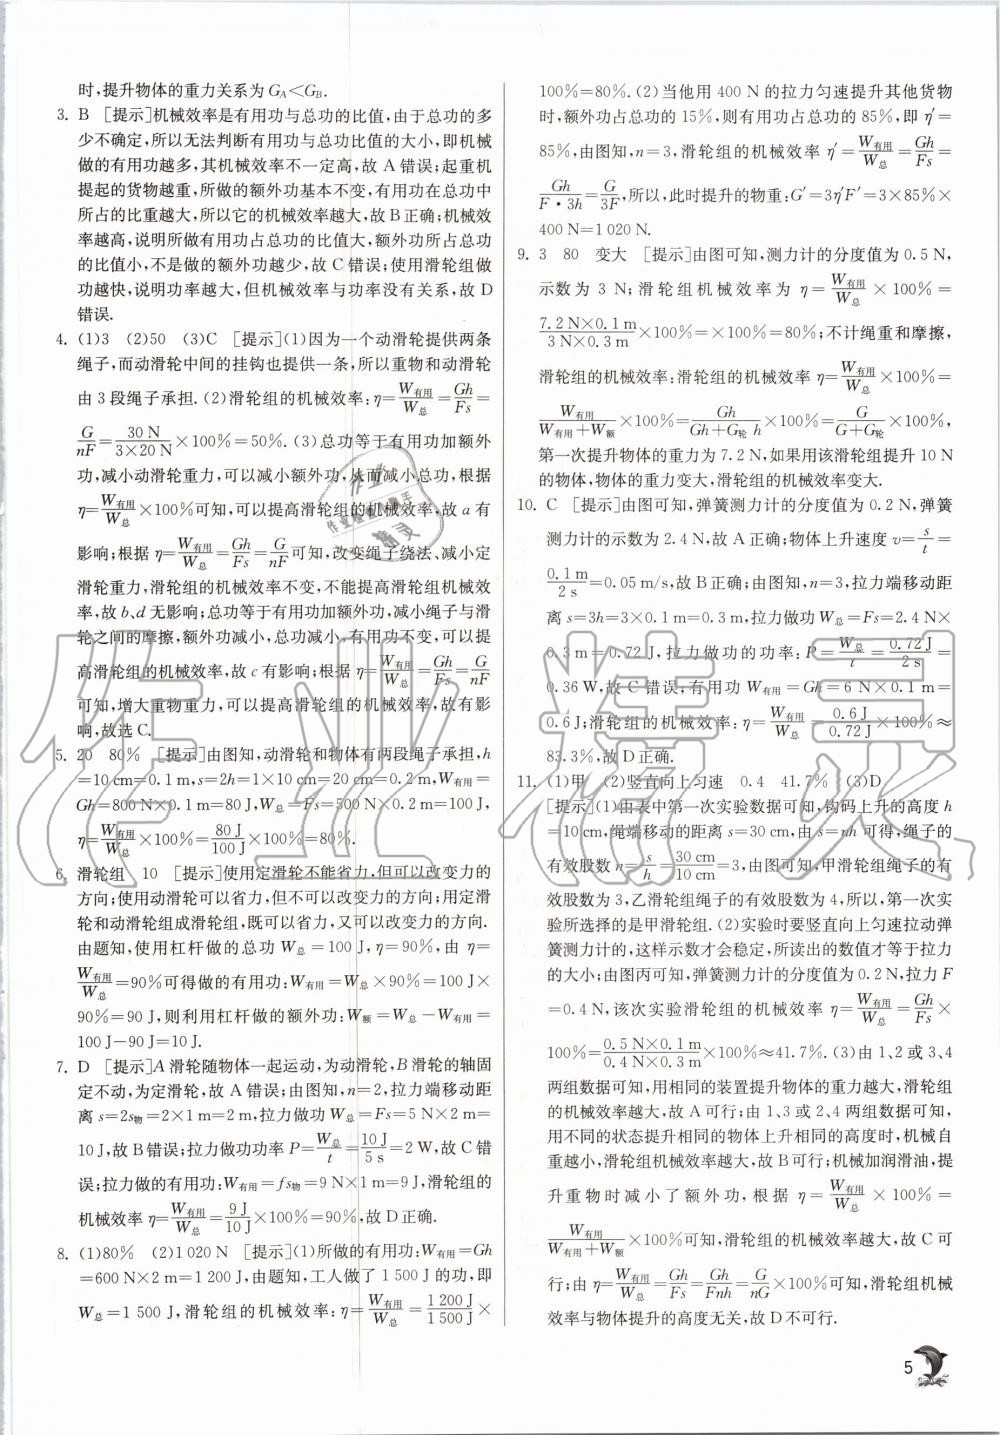 时,提升物体的重力关系为 G_A<G_B.
3. B [提示]机械效率是有用功与总功的比值,由于总功的多
少不确定,所以无法判断有用功与总功比值的大小,即机械
做的有用功越多,其机械效率不一定高,故 A 错误;起重机
提起的货物越重,所做的额外功基本不变,有用功在总功中
所占的比重越大,所以它的机械效率越大,故 B 正确;机械效
率越高,说明所做有用功占总功的比值大,额外功所占总功
的比值小,不是做的额外功越少,故 C 错误;使用滑轮组做
功越快,说明功率越大,但机械效率与功率没有关系,故 D
错误.
4. (1)3 (2)50 (3)C [提示](1)因为一个动滑轮提供两条
绳子,而动滑轮中间的挂钩也提供一条,所以重物和动滑轮
由 3 段绳子承担.(2)滑轮组的机械效率:η=W有用/W总=Gh/Fs=
G/nF=30 N/(3×20 N)×100%=50%.(3)总功等于有用功加额外
功,减小动滑轮重力,可以减小额外功,从而减小总功,根据
η=W有用/W总×100%可知,可以提高滑轮组的机械效率,故 a 有
影响;根据 η=W有用/W总=Gh/Fs=G/nF可知,改变绳子绕法、减小定
滑轮重力,滑轮组的机械效率不变,不能提高滑轮组的机械效
率,故 b、d 无影响;总功等于有用功加额外功,减小绳子与滑
轮之间的摩擦,额外功减小,总功减小,有用功不变,可以提
高滑轮组的机械效率,故 c 有影响;根据 η=W有用/W总=Gh/Fs=G/nF
可知,增大重物重力,可以提高滑轮组的机械效率,故有影
响,故选 C.
5. 20 80% [提示]由图知,动滑轮和物体有两段绳子承担,h
=10 cm=0.1 m,s=2h=1×10 m=0.2 m,W有用=
Gh=800 N×0.1 m=80 J,W总=Fs=500 N×0.2 m=100 J,
η=W有用/W总×100%=80 J/100 J×100%=80%.
6. 滑轮组 10 [提示]使用定滑轮不能省力,但可以改变力的
方向;使用动滑轮可以省力,但不可以改变力的方向;用定滑
轮和动滑轮组成滑轮组,既可以省力,又可以改变力的方向.
由题知,使用杠杆做的总功 W总=100 J,η=90%,由 η=
W有用/W总=90%可得做的有用功:W有用=W总×90%=100 J×
90%=90 J,则利用杠杆做的额外功:W额=W总-W有用=
100 J-90 J=10 J.
7. D [提示]A 滑轮随物体一起运动,为动滑轮,B 滑轮的轴固
定不动,为定滑轮,故 A 错误;由图知,n=2,拉力端移动距
离 s=2s物=2×1 m=2 m,拉力做功 W总=Fs=5 N×2 m=
10 J,故 B 错误;拉力做功功率 P=W总/t=10 J/5 s=2 W,故 C 错
误;拉力做的有用功:W有用=fs物=9 N×1 m=9 J,滑轮组的
机械效率 η=W有用/W总=9 J/10 J×100%=90%,故 D 正确.
8. (1)80% (2)1 020 N [提示](1)所做的有用功:W有用=Gh
=600 N×2 m=1 200 J,由题知,工人做了 1 500 J 的功,即
W总=1 500 J,滑轮组的机械效率:η=W有用/W总=1 200 J/1 500 J×
100%=80%.(2)当他用 400 N 的拉力匀速提升其他货物
时,额外功占总功的 15%,则有用功占总功的 85%,即 η′=
85%,由图知,n=3,滑轮组的机械效率 η′=W有用/W总=Gh/Fs=
Gh/(F·3h)=G/3F,所以,此时提升的物重:G′=3η′F′=3×85%×
400 N=1 020 N.
9. 3 80 变大 [提示]由图可知,测力计的分度值为 0.5 N,
示数为 3 N;滑轮组机械效率为 η=W有用/W总×100%=
(7.2 N×0.1 m)/(3 N×0.3 m)×100%=×100%=80%;不计绳重和摩擦,
滑轮组的机械效率:滑轮组的机械效率:η=W有用/W总×100%=
W有用/(W有用+W额)×100%=Gh/(Gh+G轮 h)×100%=G/(G+G轮)×100%,
第一次提升物体的重力为 7.2 N,如果用该滑轮组提升 10 N
的物体,物体的重力变大,滑轮组的机械效率变大.
10. C [提示]由图可知,弹簧测力计的分度值为 0.2 N,弹簧
测力计的示数为 2.4 N,故 A 正确;物体上升速度 v=s/t=
0.1 m/2 s=0.05 m/s,故 B 正确;由图知,n=3,拉力端移动距
离 s=3h=3×0.1 m=0.3 m,拉力做功 W总=Fs=2.4 N×
0.3 m=0.72 J,拉力做功的功率:P=W总/t=0.72 J/2 s=
0.36 W,故 C 错误;有用功 W有用=Gh=6 N×0.1 m=
0.6 J;滑轮组的机械效率:η=W有用/W总=0.6 J/0.72 J×100%≈
83.3%,故 D 正确.
11. (1)甲 (2)竖直向上匀速 0.4 41.7% (3)D
[提示](1)由表中第一次实验数据可知,钩码上升的高度 h
=10 cm,绳端移动的距离 s=30 cm,由 s=nh 可得,绳子的
有效股数 n=s/h=30 cm/10 cm=3,由图可知,甲滑轮组绳子的有
效股数为 3,乙滑轮组绳子的有效股数为 4,所以,第一次实
验所选择的是甲滑轮组.(2)实验时要竖直向上匀速拉动弹
簧测力计的,这样示数才会稳定,所读出的数值才等于拉力
的大小;由图丙可知,弹簧测力计的分度值为 0.2 N,拉力 F
=0.4 N,该次实验滑轮组的机械效率 η=W有用/W总=Gh/Fs×
100%=(0.5 N×0.1 m)/(0.4 N×0.3 m)×100%≈41.7%.(3)由 1、2 或 3、4
两组数据可知,用相同的装置提升物体的重力越大,滑轮组
的机械效率越大,故 A 可行;由 1、3 或 2、4 两组数据可知,
用不同的状态提升相同的物体上升相同的高度时,机械自
重越小,滑轮组机械效率越大,故 B 可行;机械加润滑油,提
升重物时减小了额外功,根据 η=W有用/W总×100%=
W有用/(W有用+W额)×100%可知,滑轮组的机械效率越大,故 C 可
行;由 η=W有用/W总=Gh/Fs=Gh/Fnh=G/nG×100%可知,滑轮组机械
效率与物体提升的高度无关,故 D 不可行.
5
作业精灵